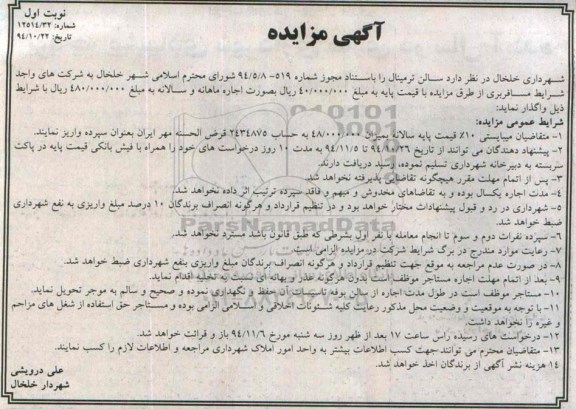 نوبت اول
شماره: ۱۲۵۱۴/۳۲
تاریخ: ۹۴/۱۰/۲۲
آگهی مزایده
شهرداری خلخال در نظر دارد سالن ترمینال را باستناد مجوز شماره ۵۱۹- ۹۴/۵/۸ شورای محترم اسلامی شهر خلخال به شرکت های واجد
شرایط مسافربری از طرق مزایده با قیمت پایه به مبلغ ۴۰/۰۰۰/۰۰۰ ریال بصورت اجاره ماهانه و سالانه به مبلغ ۴۸۰/۰۰۰/۰۰۰ ریال با شرایط
ذیل واگذار نماید:
شرایط عمومی مزایده:
۱- متقاضیان میبایستی ۱۰٪ قیمت پایه سالانه بمیزان ۴۸/۰۰۰/۰۰۰ به حساب ۲۴۳۴۸۷۵ قرض الحسنه مهر ایران بعنوان سپرده واریز نمایند.
۲- پیشنهاد دهندگان می توانند از تاریخ ۹۴/۱۰/۲۶ تا ۹۴/۱۱/۵ به مدت ۱۰ روز درخواست های خود را همراه با فیش بانکی قیمت پایه در پاکت
سربسته به دبیرخانه شهرداری تسلیم نموده، رسید دریافت دارند.
۳- پس از اتمام مهلت مقرر هیچگونه تقاضایی پذیرفته نخواهد شد.
۴- مدت اجاره یکسال بوده و به تقاضاهای مخدوش و مبهم و فاقد سپرده ترتیب اثر داده نخواهد شد.
۵- شهرداری در رد و قبول پیشنهادات مختار خواهد بود و در تنظیم قرارداد و هرگونه انصراف برندگان ۱۰ درصد مبلغ واریزی به نفع شهرداری
ضبط خواهد شد.
۶- سپرده نفرات دوم و سوم تا انجام معامله با نفر اول بشرطی که طبق قانون باشد مسترد نخواهد شد.
۷- رعایت موارد مندرج در برگ شرایط شرکت در مزایده الزامی است.
۸- در صورت عدم مراجعه به موقع جهت تنظیم قرارداد و هرگونه انصراف برندگان مبلغ واریزی بنفع شهرداری ضبط خواهد شد.
۹- بعد از اتمام مهلت اجاره مستاجر موظف است بدون هرگونه عذر و بهانه می بایست به تخلیه اقدام نماید.
۱۰- مستاجر موظف است در طول مدت اجاره از سالن بوفه تاسیسات آن حفظ و نگهداری نموده و صحیح و سالم به موجر تحویل نماید.
۱۱- با توجه به موقعیت و وضعیت محل مذکور رعایت کلیه شئونات اخلاقی و اسلامی الزامی بوده و مستاجر حق استفاده از شغل های مزاحم
و غیره را نخواهد داشت.
۱۲- درخواست های رسیده راس ساعت ۱۷ بعد از ظهر روز سه شنبه مورخ ۹۴/۱۱/۶ باز و قرائت خواهد شد.
۱۳- متقاضیان محترم می توانند جهت کسب اطلاعات بیشتر به واحد امور املاک شهرداری مراجعه و اطلاعات لازم را کسب نمایند.
۱۴ هزینه نشر آگهی از برندگان اخذ خواهد شد.
علی درویشی
شهردار خلخال
ParsNamadData